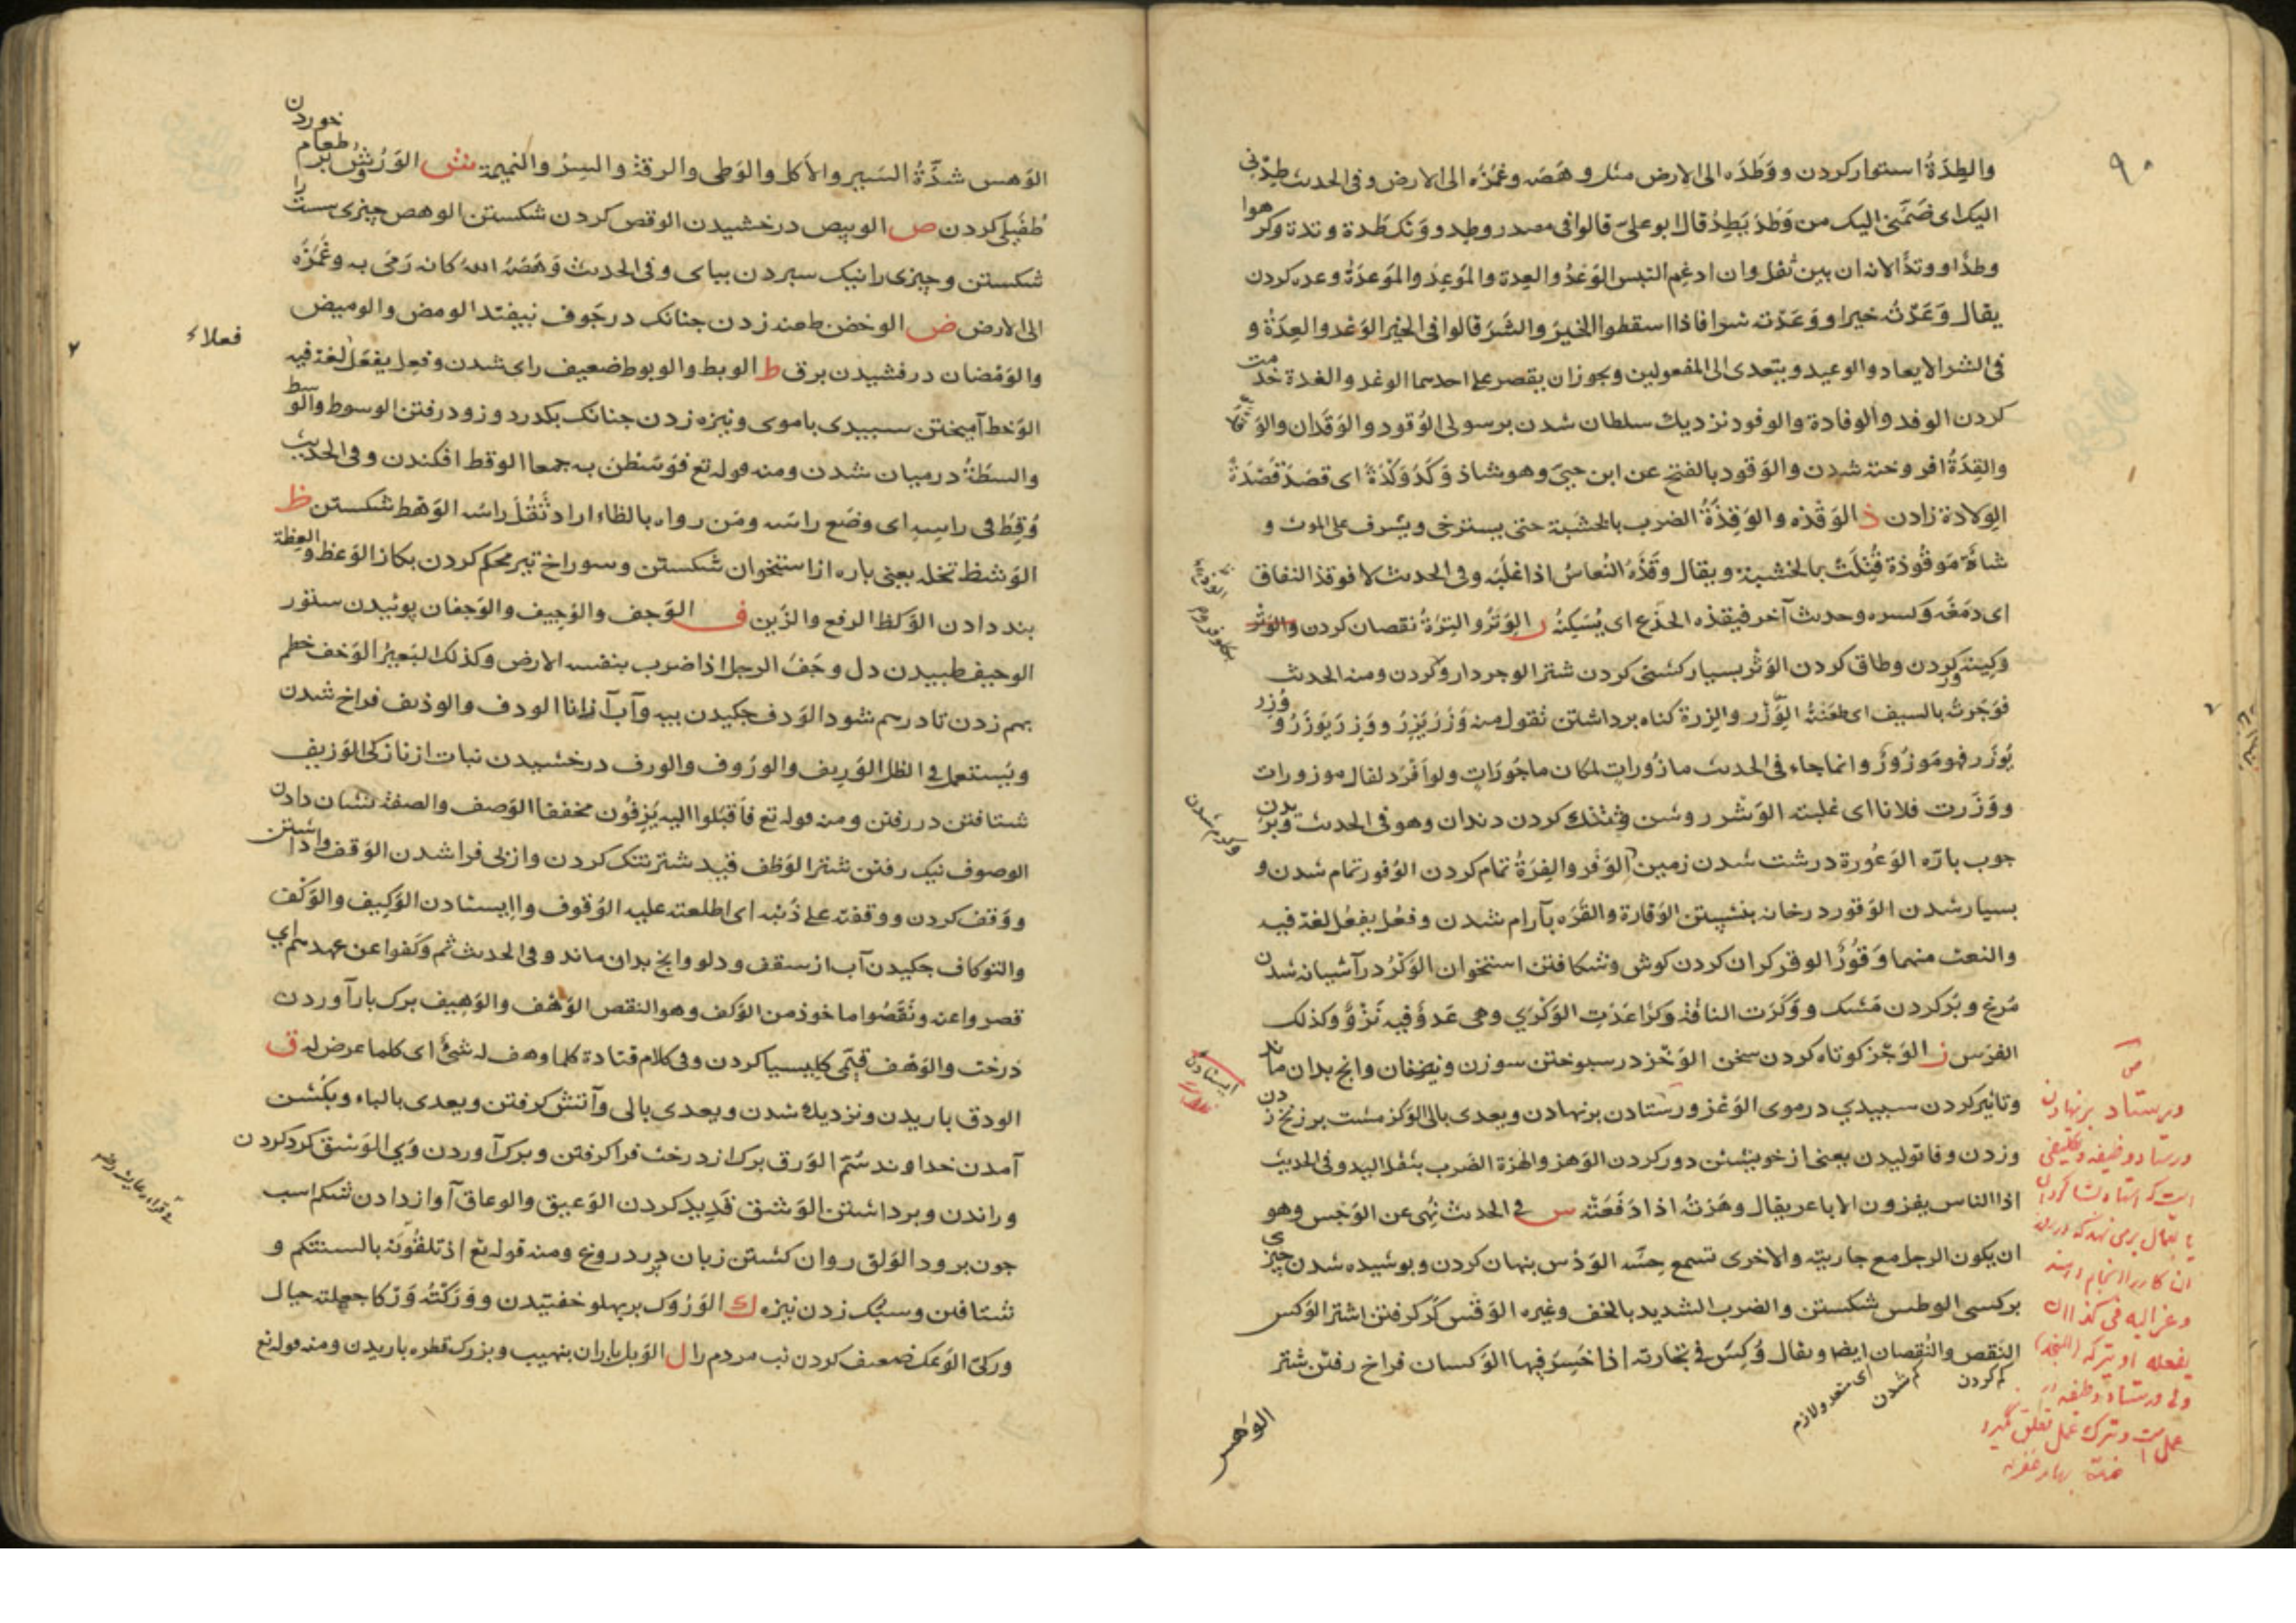 ۹۰
والطِدَةُ استوار کردن ووَطَدَه الی الارض مثل وهَصَه وغَمَزَه الی الارض وفی الحدیث طِدْنی
الیک ای ضُمَّنی الیک من وَطَدَ یَطِدُ قال ابو علی قالوا فی مصدر وطد ووتد طدة وتدة وکرهوا
وطدًا ووتدًا لانه ان بین ثقل وان ادغم التبس الوَعْدُ والعِدة والمَوعِدُ والمَوعدَةُ وعده کردن
یقال وَعَدْتُ خیرا ووَعَدْته شرا فاذا اسقطوا الخیرَ والشَرَ قالوا فی الخیر الوَعْد والعِدَةُ و
فی الشر الایعاد والوعید ویتعدی الی المفعولین ویجوز ان یقصر علی احدهما الوغد والغدة خدمت
کردن الوفد والوفادة والوفود نزدیک سلطان شدن برسولی الوُقود والوَقَدان والوَقْد
والقِدَةُ افروخته شدن والوَقود بالفتح عن ابن جنی وهو شاذ وَکَدَ وَکْدَهُ ای قصَدَ قَصْدَهُ
الوِلادة زادن ذ الوَقْذه والوَقِذَةُ الضرب بالخشبة حتی یسترخی ویشرف علی الموت و
شاةٌ مَوقُوذة قُتِلَتْ بالخشبة ویقال وقَذَهُ النُعاسُ اذا غلَبَه وفی الحدیث لا فوقذ النفاق
ای دمَغَه وکسره وحدیث آخر فیقذه الجذَع ای یُسَکِنُه ر الوَتْرُ والتِرَةُ نقصان کردن والوَتْر
وکینه کردن وطاق کردن الوَثْر بسیار کشنی کردن شتر الوجر دارو کردن ومنه الحدیث
فوَجَرتُه بالسیف ای طعَنتُه الوِزْر والزِرة کناه برداشتن تقول منه وَزَرَ یَزِرُ ووَزِرَ یَوْزَرُ ووُزِر
یُوزَر فهو مَوزُورٌ وانما جاء فی الحدیث مازُورات لمکان ماجُورَات ولو اَفْرَد لقال موزورات
ووَزَرت فلانا ای غلبته الوَشْر روشن وتُنُک کردن دندان وهو فی الحدیث وبریدن
جوب باَرّه الوَعُورة درشت شدن زمین الوَفْر والفِرَةُ تمام کردن الوُفور تمام شدن و
بسیار شدن الوَقور در خانه بنشستن الوَقارة والقَرَه بآرام شدن وفعُل یفعُل لغة فیه
والنعت منهما وَقُورٌ الوقر کران کردن کوش وشکافتن استخوان الوَکْرُ در آشیانه شدن
مُرغ وپُر کردن مَشک ووَکَرَت الناقةُ وکرًا عَدَت الوَکَرَی وهی عَدوٌ فیه نَزْوٌ وکذلک
الفرَس ز الوَجْز کوتاه کردن سخن الوَخْز در سبوختن سوزن ونیفغان وانج بدان ماند
وتاثیر کردن سبیدی در موی الوَعْز ورستادن برنهادن ویعدی بالی الوَکز مشت بر زنخ زدن
وزدن وفا تولیدن یعنی از خویشتن دور کردن الوَهز والهزة الضَرب بثقل الید وفی الحدیث
اذا الناس یهزون الاباعر یقال وهَزتُه اذا دَفَعَتْه س فی الحدیث نُهی عن الوَجْس وهو
ان یکون الرجل مع جاریته والاخری تسمع حِسَّه الوَدْس بنهان کردن وبوشیده شدن چیزی
برکسی الوطس شکستن والضرب الشدید بالخف وغیره الوَقْس کر کرفتن اشتر الوَکس
النقص والنُقصان ایضا ویقال وُکِسَ فی تجارته اذا خَسِرَ فیها الوَکسان فراخ رفتن شتر
کم کردن
کم شدن
ای متعد ولازم
الوَهس
ایستادن
الوَهس شدّةُ السَیر والأکل والوَطی والرقة والسِرُ والنمیمة ش الوَرْش بر طعام خوردن
طُفَیلی کردن ص الوبیص درخشیدن الوقص کردن شکستن الوهص چیزی سست را
شکستن وچیزی را نیک سبردن بپای وفی الحدیث وَهَصَهُ الله کانه رَمَی به وغَمَزَه
الی الارض ض الوخض طعنه زدن جنانک در جَوف نیفتد الومض والومیض
والوَمَضان درفشیدن برق ط الوبط والوبوط ضعیف رای شدن وفعِل یفعَل لغة فیه
فعلاء
الوَخط آمیختن سبیدی باموی ونیزه زدن جنانک بکدرد وزود رفتن الوسوط والوسط
والسطَةُ درمیان شدن ومنه قوله تع فوَسَطْنَ به جمعا الوقط افکندن وفی الحدیث
وُقِطَ فی راسِه ای وضَع راسَه ومَن رواه بالظاء اراد ثَقُلَ راسَه الوَهط شکستن ظ
الوَشظ تخله یعنی باره از استخوان شکستن وسوراخ تبر محکم کردن بکاز الوَعظ والعِظة
بند دادن الوَکظ الرفع والزَین ف الوَجف والوَجیف والوَجفان پوئیدن ستور
الوجیف طبیدن دل وجَفَ الرجل اذا ضرب بنفسه الارض وکذلک البَعیرُ الوَخف خطم
بهم زدن تا درهم شود الوَدف جکیدن بیه وآب از اناا الودف والوذیف فراخ شدن
ویُستعمل فی الظل الوَرِیف والورُوف والورف درخشیدن نبات از نازکی الوَزیف
شتافتن در رفتن ومنه قوله تع فاَقبَلوا الیه یَزِفُون مخففا الوَصف والصفة نشان دادن
الوصوف نیک رفتن شتر الوَظف قید شتر تنک کردن واز پی فرا شدن الوَقف واداشتن
ووَقف کردن ووقفته علی ذَنبه ای اطلعته علیه الوُقوف واایستادن الوَکِیف والوَکْف
والتوکاف جکیدن آب از سقف ودلو وانج بدان ماند وفی الحدیث ثم وکَفوا عن عهدهم ای
قصروا عنه ونَقَصُوا ماخوذ من الوَکف وهو النقص الوَهْف والوَهِیف برک بار آوردن
درخت والوَهْف قیّمی کلیسیا کردن وفی کلام قتادة کلما وهف له شیٌ ای کلما عرض له ق
الودق باریدن ونزدیک شدن ویعدی بالی وآتش کرفتن ویعدی بالباء وبکُشن
آمدن خداوند سُمّ الوَرق برک از درخت فرا کرفتن وبرک آوردن وَی الوَسْق کرد کردن
وراندن وبرداشتن الوَشق قَدِید کردن الوَعیق والوعاق آواز دادن شکم اسب
جون برود الوَلق روان کشتن زبان بر دروغ ومنه قوله تع اذ تلِقُونَه بالسنتکم و
شتافتن وسبُک زدن نیزه ك الوَرُوک بر پهلو خفتیدن ووَرَکْتُه وَرْکًا جعلته حیال
ورکی الوَعک ضعیف کردن تب مردم را ل الوَبل باران بنهیب وبزرک قطره باریدن ومنه قوله تع